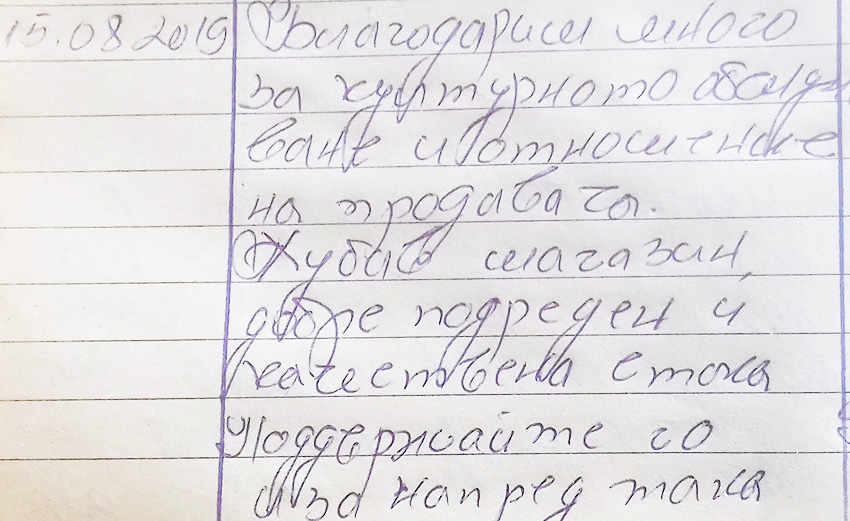 15.08 2019 Благодарим много
за културното обслуж
ване и отношение
на продавача.
Хубав магазин,
добре подреден и
качествена стока
Поддържайте го
и за напред така